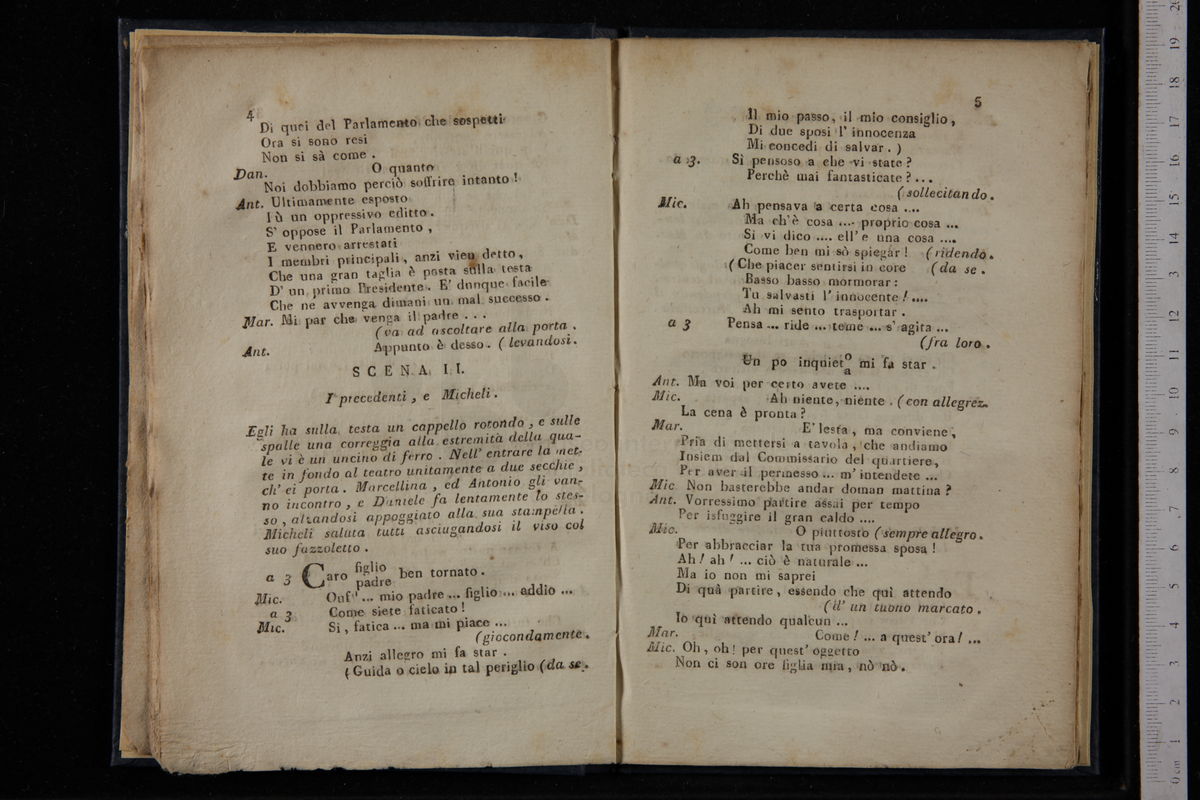 4
Di quei del Parlamento che sospetti
Ora si sono resi
Non si sà come .
Dan. O quanto
Noi dobbiamo perciò soffrire intanto !
Ant. Ultimamente esposto
Fù un oppressivo editto .
S' oppose il Parlamento ,
E vennero arrestati
I membri principali , anzi vien detto ,
Che una gran taglia è posta sulla testa
D' un primo Presidente . E' dunque facile
Che ne avvenga dimani un mal successo .
Mar. Mi par che venga il padre . . .
(va ad ascoltare alla porta .
Ant. Appunto è desso . ( levandosi .
SCENA II.
I precedenti , e Micheli .
Egli ha sulla testa un cappello rotondo , e sulle
spalle una correggia alla estremità della qua-
le vi è un uncino di ferro . Nell' entrare la met-
te in fondo al teatro unitamente a due secchie ,
ch' ei porta . Marcellina , ed Antonio gli van-
no incontro , e Daniele fa lentamente lo stes-
so , alzandosi appoggiato alla sua stampella .
Micheli saluta tutti asciugandosi il viso col
suo fazzoletto .
a 3 Caro figlio padre ben tornato .
Mic. Ouf ! ... mio padre ... figlio ... addio ...
a 3 Come siete faticato !
Mic. Si , fatica ... ma mi piace ...
(giocondamente .
Anzi allegro mi fa star .
( Guida o cielo in tal periglio (da se .
5
Il mio passo , il mio consiglio ,
Di due sposi l' innocenza
Mi concedi di salvar . )
a 3. Sì pensoso a che vi state ?
Perchè mai fantasticate ? ...
( sollecitando .
Mic. Ah pensava a certa cosa ....
Ma ch'è cosa .... proprio cosa ...
Si vi dico .... ell' e una cosa ....
Come ben mi sò spiegar ! ( ridendo .
( Che piacer sentirsi in core (da se .
Basso basso mormorar :
Tu salvasti l' innocente ! ....
Ah mi sento trasportar .
a 3 Pensa ... ride ... teme ... s' agita ...
(fra loro .
Un po inquieto a mi fa star .
Ant. Ma voi per certo avete ....
Mic. Ah niente , niente . ( con allegrez.
La cena è pronta ?
Mar. E' lesta , ma conviene ,
Pria di mettersi a tavola , che andiamo
Insiem dal Commissario del quartiere ,
Per aver il permesso ... m' intendete ...
Mic Non basterebbe andar doman mattina ?
Ant. Vorressimo partire assai per tempo
Per isfuggire il gran caldo ....
Mic. O piuttosto ( sempre allegro .
Per abbracciar la tua promessa sposa !
Ah ! ah ! ... ciò è naturale ...
Ma io non mi saprei
Di quà partire , essendo che quì attendo
( d' un tuono marcato .
Io quì attendo qualcun ...
Mar. Come ! ... a quest' ora ! ...
Mic. Oh , oh ! per quest' oggetto
Non ci son ore figlia mia , nò nò .